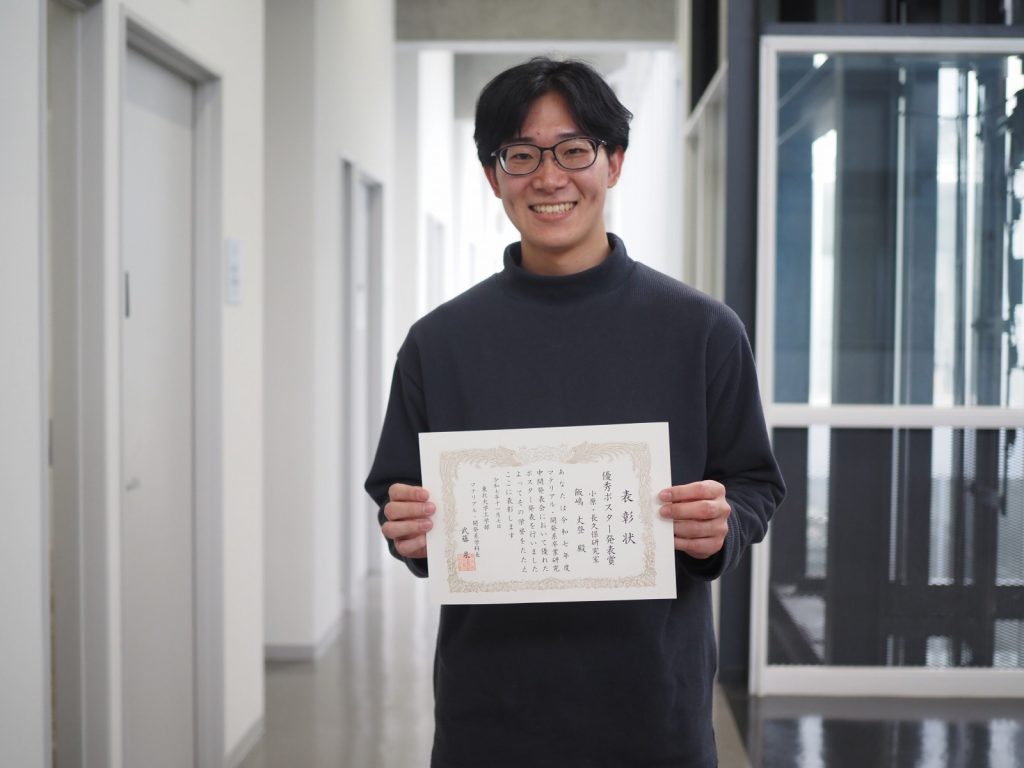 表彰状
優秀ポスター発表賞
小原・長久保研究室
飯嶋 大登 殿
あなたは令和七年度
マテリアル・開発系卒業研究
中間発表会において優れた
ポスター発表を行いました
よってその栄誉をたたえ
ここに表彰します
令和七年十一月七日
東北大学工学部
マテリアル・開発系学科長
武藤 泉